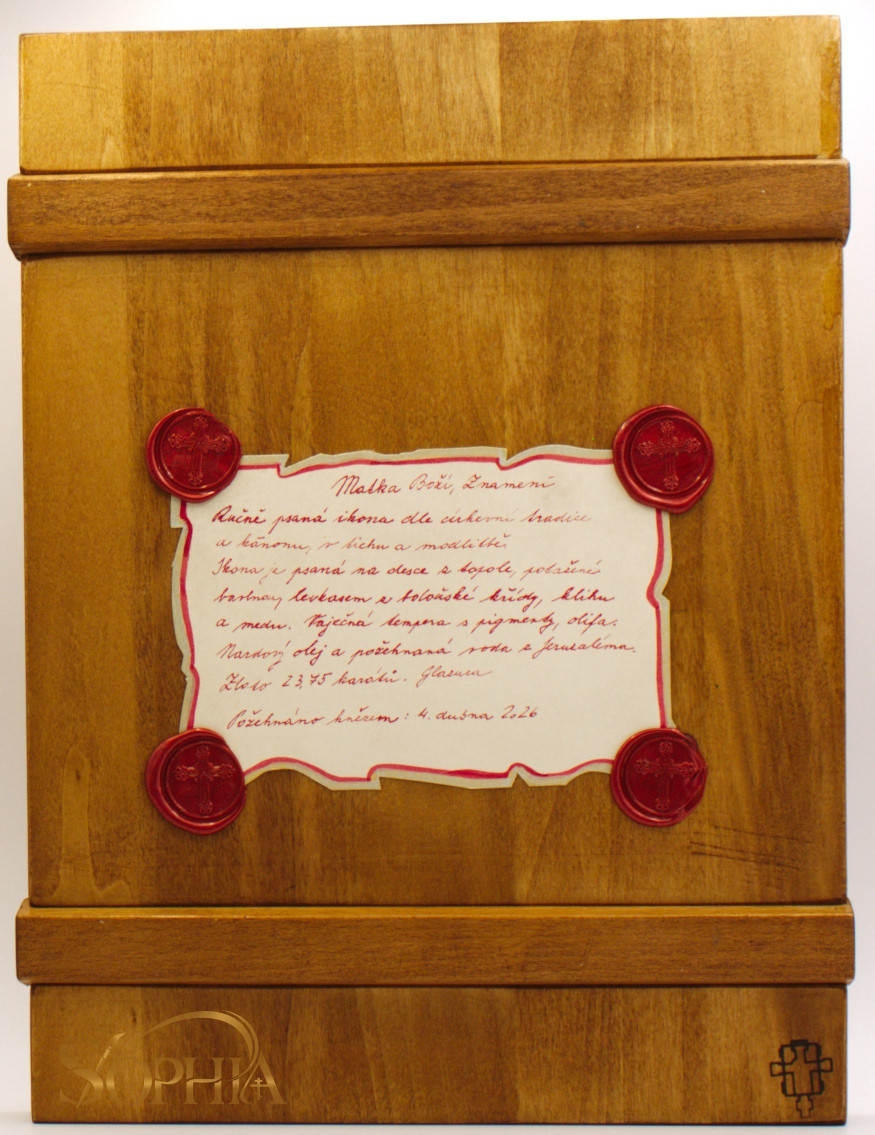 Matka Boží, Znamení
Ručně psaná ikona dle církevní tradice
a kánonu, v tichu a modlitbě.
Ikona je psaná na desce z topole, potažené
bavlnou, levkasem z boloňské křídy, klihu
a medu. Vaječná tempera s pigmenty, olifa.
Nardový olej a požehnaná voda z Jeruzaléma.
Zlato 23,75 karátů. Glazura
Požehnáno knězem: 4. dubna 2026
SOPHIA